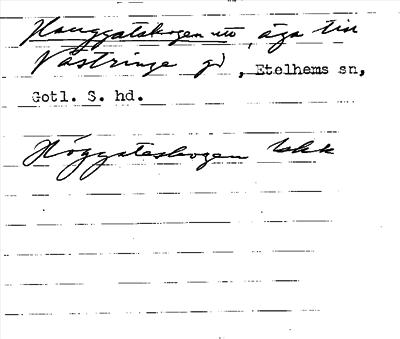 Hauggatskogen utö, äga till
Västringe gd, Etelhems sn,
Gotl. S. hd.
Höggateskogen